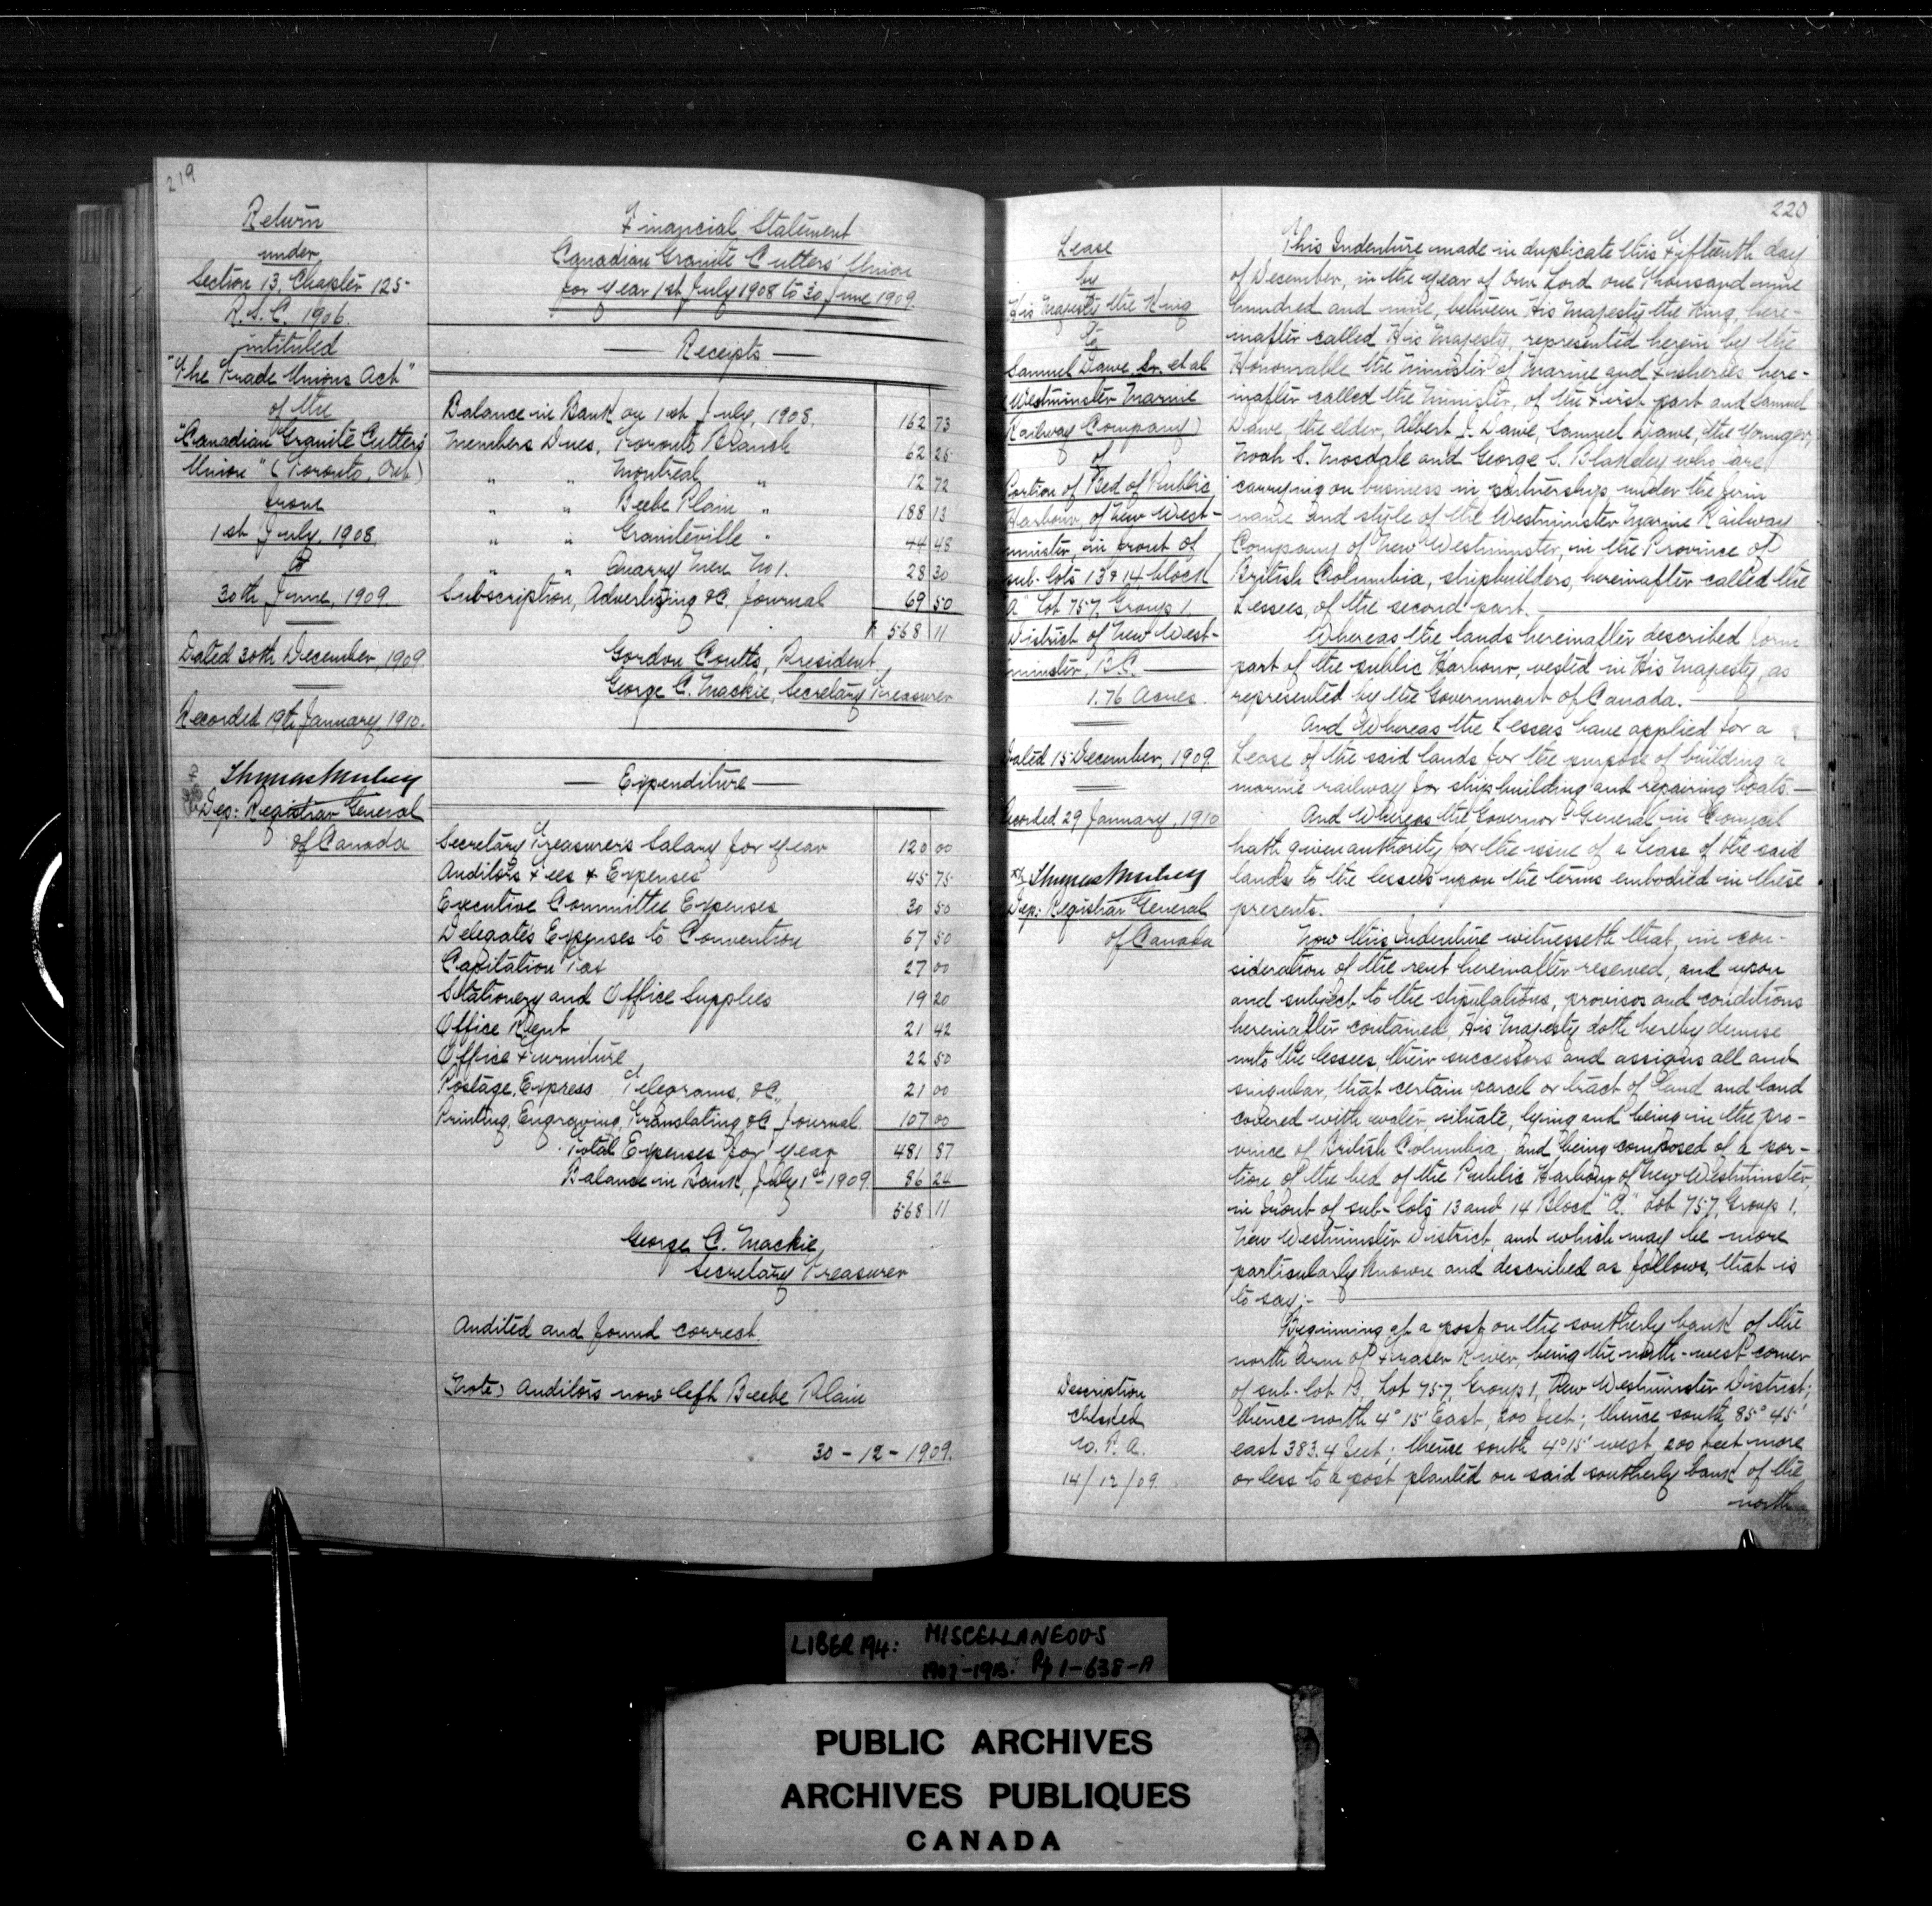 219
Return
under
Section 13, Chapter 125
R.S.C. 1906.
intituled
"The Trade Unions Act"
of the
"Canadian Granite Cutters'
Union" (Toronto, Ont)
from
1st July, 1908
to
30th June, 1909
Dated 30th December, 1909
Recorded 19th January, 1910.
Dep: Registrar General
of Canada
Financial Statement
Canadian Granite Cutters' Union
for year 1st July 1908 to 30 June 1909
— Receipts —
Balance in Bank on 1st July, 1908. 162 73
Members Dues, Toronto Branch 62 25
" " Montreal " 12 72
" " Beebe Plain " 188 13
" " Graniteville " 44 48
" " Quarry Men No 1. 28 30
Subscription, Advertizing &c, Journal 69 50
$ 568 11
Gordon Coutts, President
George C. Mackie, Secretary Treasurer
— Expenditure —
Secretary Treasurer's Salary for year 120 00
Auditors Fees & Expenses 45 75
Executive Committee Expenses 30 50
Delegates Expenses to Convention 67 50
Capitation Tax 27 00
Stationery and Office Supplies 19 20
Office Rent 21 42
Office Furniture 22 50
Postage, Express Telegrams, &c., 21 00
Printing, Engraving, Translating &c Journal 107 00
Total Expenses for year 481 87
Balance in Bank, July 1st 1909. 86 24
568 11
George C. Mackie,
Secretary Treasurer
Audited and found correct.
(Note) Auditors now left Beebe Plain
30-12-1909.
220
Lease
by
His Majesty the King
To
Samuel Dawe Sr. et al
(Westminster Marine
Railway Company)
of
Portion of Bed of Public
Harbour, of New West-
minster, in front of
sub-lots 13 & 14 block
"A" Lot 757, Group 1
District of New West-
minster, B.C. —
1.76 Acres.
Dated 15 December, 1909
Recorded 29 January, 1910
Dep: Registrar General
of Canada
Description
checked
W. P. A.
14/12/09.
This Indenture made in duplicate this Fifteenth day
of December, in the year of Our Lord one Thousand nine
hundred and nine, between His Majesty the King, here-
inafter called His Majesty, represented herein by the
Honourable the Minister of Marine and Fisheries here-
inafter called the Minister, of the First part and Samuel
Dawe, the elder, Albert J. Dawe, Samuel Dawe, the Younger,
Noah S. Mosdale and George S. Blakeley who are
carrying on business in partnership, under the firm
name and style of the Westminster Marine Railway
Company of New Westminster, in the Province of
British Columbia, shipbuilders, hereinafter called the
Lessees, of the second part. —
Whereas the lands hereinafter described form
part of the public Harbour, vested in His Majesty, as
represented by the Government of Canada. —
And Whereas the Lessees have applied for a
Lease of the said lands for the purpose of building a
marine railway for shipbuilding and repairing boats. —
And Whereas the Governor General in Council
hath given authority for the issue of a Lease of the said
lands to the lessees upon the terms embodied in these
presents. —
Now this Indenture witnesseth that, in con-
sideration of the rent hereinafter reserved, and upon
and subject to the stipulations, provisos and conditions
hereinafter contained, His Majesty doth hereby demise
unto the lessees, their successors and assigns all and
singular, that certain parcel or tract of land and land
covered with water, situate, lying and being in the pro-
vince of British Columbia, and being composed of a por-
tion of the bed of the Public Harbour of New Westminster,
in front of sub-lots 13 and 14 Block "A" Lot 757, Group 1,
New Westminster District, and which may be more
particularly known and described as follows, that is
to say:- —
Beginning at a post on the southerly bank of the
north arm of Fraser River, being the north-west corner
of sub-lot 13, Lot 757, Group 1, New Westminster District;
thence north 4° 15' East, 200 feet; thence south 85° 45'
east 383.4 feet; thence south 4° 15' west, 200 feet more
or less to a post planted on said southerly bank of the
north
LIBER 194: MISCELLANEOUS
1907-1913. Pp 1-638-A
PUBLIC ARCHIVES
ARCHIVES PUBLIQUES
CANADA